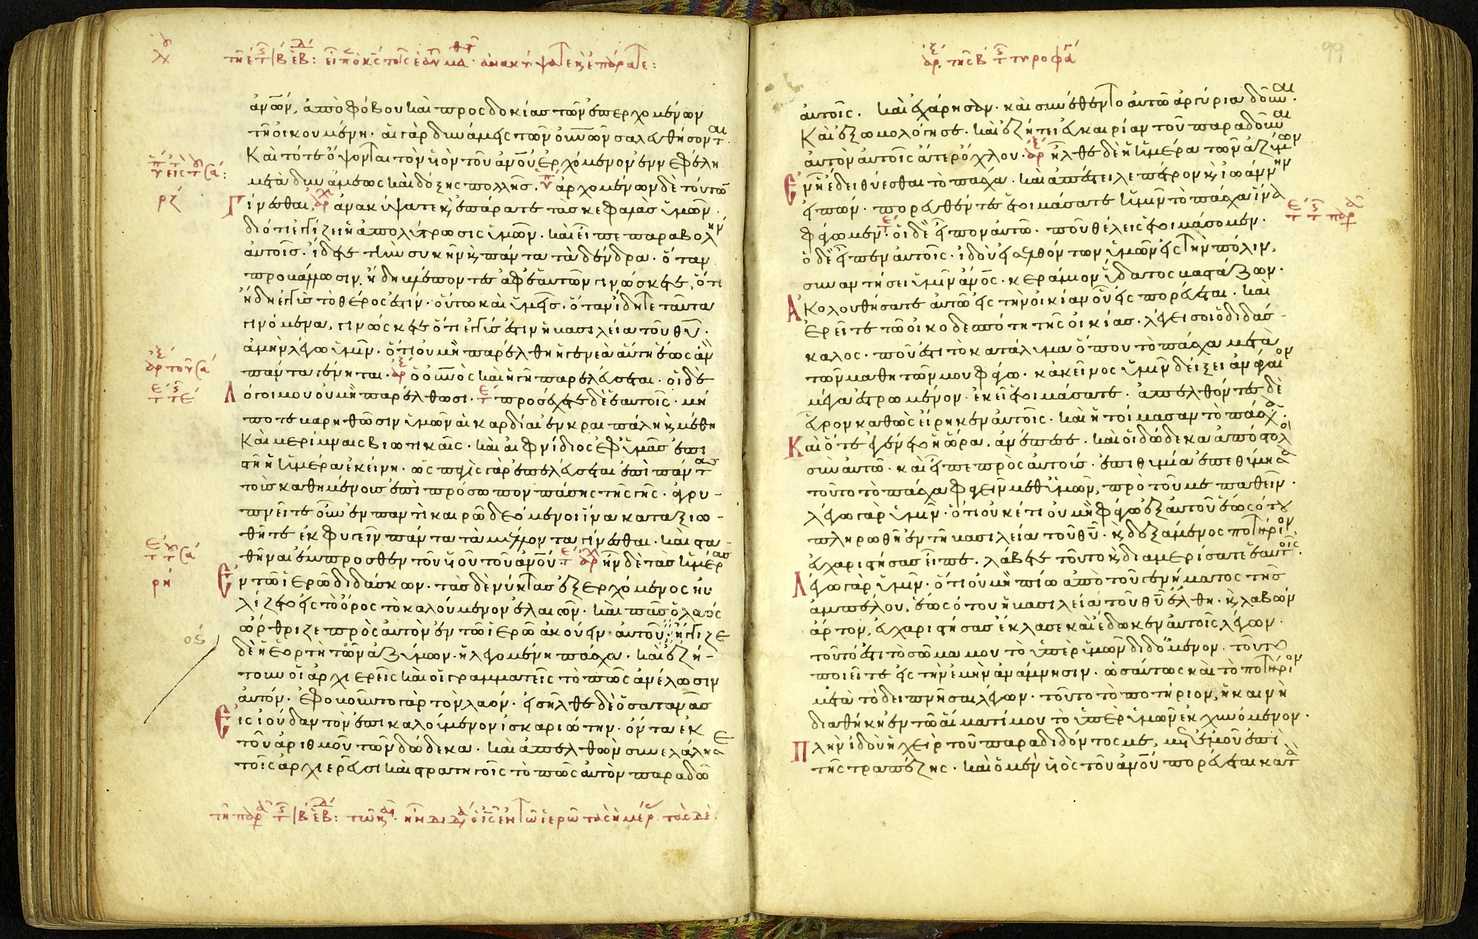 ἀνων, ἀπὸ φόβου καὶ προσδοκίας τῶν ἐπερχομένων
τῆ οἰκουμένη· αἱ γὰρ δυνάμεις τῶν οὐνῶν σαλευθήσονται·
Καὶ τότε ὄψονται τὸν υἱὸν τοῦ ἀνου ἐρχόμενον ἐν νεφέλη
μετὰ δυνάμεως καὶ δόξης πολλῆς· ἀρχομένων δὲ τούτων
Γίνεσθαι, ἀνακύψατε κ ἐπάρατε τὰς κεφαλὰς ὑμῶν·
διότι ἐγγίζει ἡ ἀπολύτρωσις ὑμῶν· καὶ εἶπε παραβολὴν
αὐτοῖς· ἴδετε τὴν συκῆν κ πάντα τὰ δένδρα· ὅταν
προβάλωσιν ἤδη βλέποντες ἀφ' ἑαυτῶν γινώσκετε, ὅτι
ἤδη ἐγγὺς τὸ θέρος ἐστίν· οὕτω καὶ ὑμεῖς· ὅταν ἴδητε ταῦτα
γινόμενα, γινώσκετε ὅτι ἐγγύς ἐστιν ἡ βασιλεία τοῦ θυ·
ἀμὴν λέγω ὑμῖν· ὅτι οὐ μὴ παρέλθη ἡ γενεὰ αὕτη ἕως ἂν
πάντα γένηται· ὁ οὐνὸς καὶ ἡ γῆ παρελεύσεται· οἱ δὲ
Λόγοι μου οὐ μὴ παρέλθωσι· προσέχετε δὲ ἑαυτοῖς· μή
ποτε βαρηθῶσιν ὑμῶν αἱ καρδίαι ἐν κραιπάλη κ μέθη
Καὶ μερίμναις βιωτικαῖς· καὶ αἰφνίδιος ἐφ' ὑμᾶς ἐπιστῆ
ἡ ἡμέρα ἐκείνη· ὡς παγὶς γὰρ ἐπελεύσεται ἐπὶ πάντας
τοὺς καθημένους ἐπὶ πρόσωπον πάσης τῆς γῆς· ἀγρυ-
πνεῖτε οὖν ἐν παντὶ καιρῶ δεόμενοι ἵνα καταξιω-
θῆτε ἐκφυγεῖν πάντα τὰ μέλλοντα γίνεσθαι· καὶ στα-
θῆναι ἔμπροσθεν τοῦ υἱοῦ τοῦ ἀνου· ἦν δὲ τὰς ἡμέρας
Ἐν τῶ ἱερῶ διδάσκων· τὰς δὲ νύκτας ἐξερχόμενος ηὐ-
λίζετο εἰς τὸ ὄρος τὸ καλούμενον ἐλαιῶν· καὶ πᾶς ὁ λαὸς
ὤρθριζε πρὸς αὐτὸν ἐν τῶ ἱερῶ ἀκούειν αὐτοῦ· ἤγγιζε
δὲ ἡ ἑορτὴ τῶν ἀζύμων· ἡ λεγομένη πάσχα· καὶ ἐζή-
τουν οἱ ἀρχιερεῖς καὶ οἱ γραμματεῖς τὸ πῶς ἀνέλωσιν
αὐτόν· ἐφοβοῦντο γὰρ τὸν λαόν· εἰσῆλθε δὲ ὁ σατανᾶς
Εἰς ἰούδαν τὸν ἐπικαλούμενον ἰσκαριώτην· ὄντα ἐκ
τοῦ ἀριθμοῦ τῶν δώδεκα· καὶ ἀπελθὼν συνελάλησε
τοῖς ἀρχιερεῦσι καὶ στρατηγοῖς τὸ πῶς αὐτὸν παραδῶ
αὐτοῖς· καὶ ἐχάρησαν· καὶ συνέθεντο αὐτῶ ἀργύρια δοῦναι·
Καὶ ἐξωμολόγησε· καὶ ἐζήτει εὐκαιρίαν τοῦ παραδοῦναι
αὐτὸν αὐτοῖς ἄτερ ὄχλου· ἦλθε δὲ ἡ ἡμέρα τῶν ἀζύμων
Ἐν ἧ ἔδει θύεσθαι τὸ πάσχα· καὶ ἀπέστειλε πέτρον κ ἰωάννην
εἰπών· πορευθέντες ἑτοιμάσατε ἡμῖν τὸ πάσχα ἵνα
φάγωμεν· οἱ δὲ εἶπον αὐτῶ· ποῦ θέλεις ἑτοιμάσομεν·
ὁ δὲ εἶπεν αὐτοῖς· ἰδοὺ εἰσελθόντων ὑμῶν εἰς τὴν πόλιν,
συναντήσει ὑμῖν ἀνος· κεράμιον ὕδατος βαστάζων·
Ἀκολουθήσατε αὐτῶ εἰς τὴν οἰκίαν οὗ εἰσπορεύεται· καὶ
ἐρεῖτε τῶ οἰκοδεσπότη τῆς οἰκίας· λέγει σοι ὁ διδάσ-
καλος· ποῦ ἐστι τὸ κατάλυμα ὅπου τὸ πάσχα μετὰ
τῶν μαθητῶν μου φάγω· κἀκεῖνος ὑμῖν δείξει ἀνάγαιον
μέγα ἐστρωμένον· ἐκεῖ ἑτοιμάσατε· ἀπελθόντες δὲ
εὗρον καθὼς εἴρηκεν αὐτοῖς· καὶ ἡτοίμασαν τὸ πάσχα·
Καὶ ὅτε ἐγένετο ἡ ὥρα, ἀνέπεσε· καὶ οἱ δώδεκα ἀπόστολοι
σὺν αὐτῶ· καὶ εἶπε πρὸς αὐτούς· ἐπιθυμία ἐπεθύμησα
τοῦτο τὸ πάσχα φαγεῖν μεθ' ὑμῶν, πρὸ τοῦ με παθεῖν·
λέγω γὰρ ὑμῖν· ὅτι οὐκέτι οὐ μὴ φάγω ἐξ αὐτοῦ ἕως ὅτου
πληρωθῆ ἐν τῆ βασιλεία τοῦ θυ· κ δεξάμενος ποτήριον
εὐχαριστήσας εἶπε· λάβετε τοῦτο κ διαμερίσατε ἑαυτοῖς·
Λέγω γὰρ ὑμῖν· ὅτι οὐ μὴ πίω ἀπὸ τοῦ γενήματος τῆς
ἀμπέλου, ἕως ὅτου ἡ βασιλεία τοῦ θυ ἔλθη· κ λαβὼν
ἄρτον, εὐχαριστήσας ἔκλασε καὶ ἔδωκεν αὐτοῖς λέγων·
τοῦτό ἐστι τὸ σῶμα μου τὸ ὑπὲρ ὑμῶν διδόμενον· τοῦτο
ποιεῖτε εἰς τὴν ἐμὴν ἀνάμνησιν· ὡσαύτως καὶ τὸ ποτήριον
μετὰ τὸ δειπνῆσαι λέγων· τοῦτο τὸ ποτήριον, ἡ καινὴ
διαθήκη ἐν τῶ αἵματί μου τὸ ὑπὲρ ὑμῶν ἐκχυνόμενον·
Πλὴν ἰδοὺ ἡ χεὶρ τοῦ παραδιδόντος με, μετ' ἐμοῦ ἐπὶ
τῆς τραπέζης· καὶ ὁ μὲν υἱὸς τοῦ ἀνου πορεύεται κατὰ
99